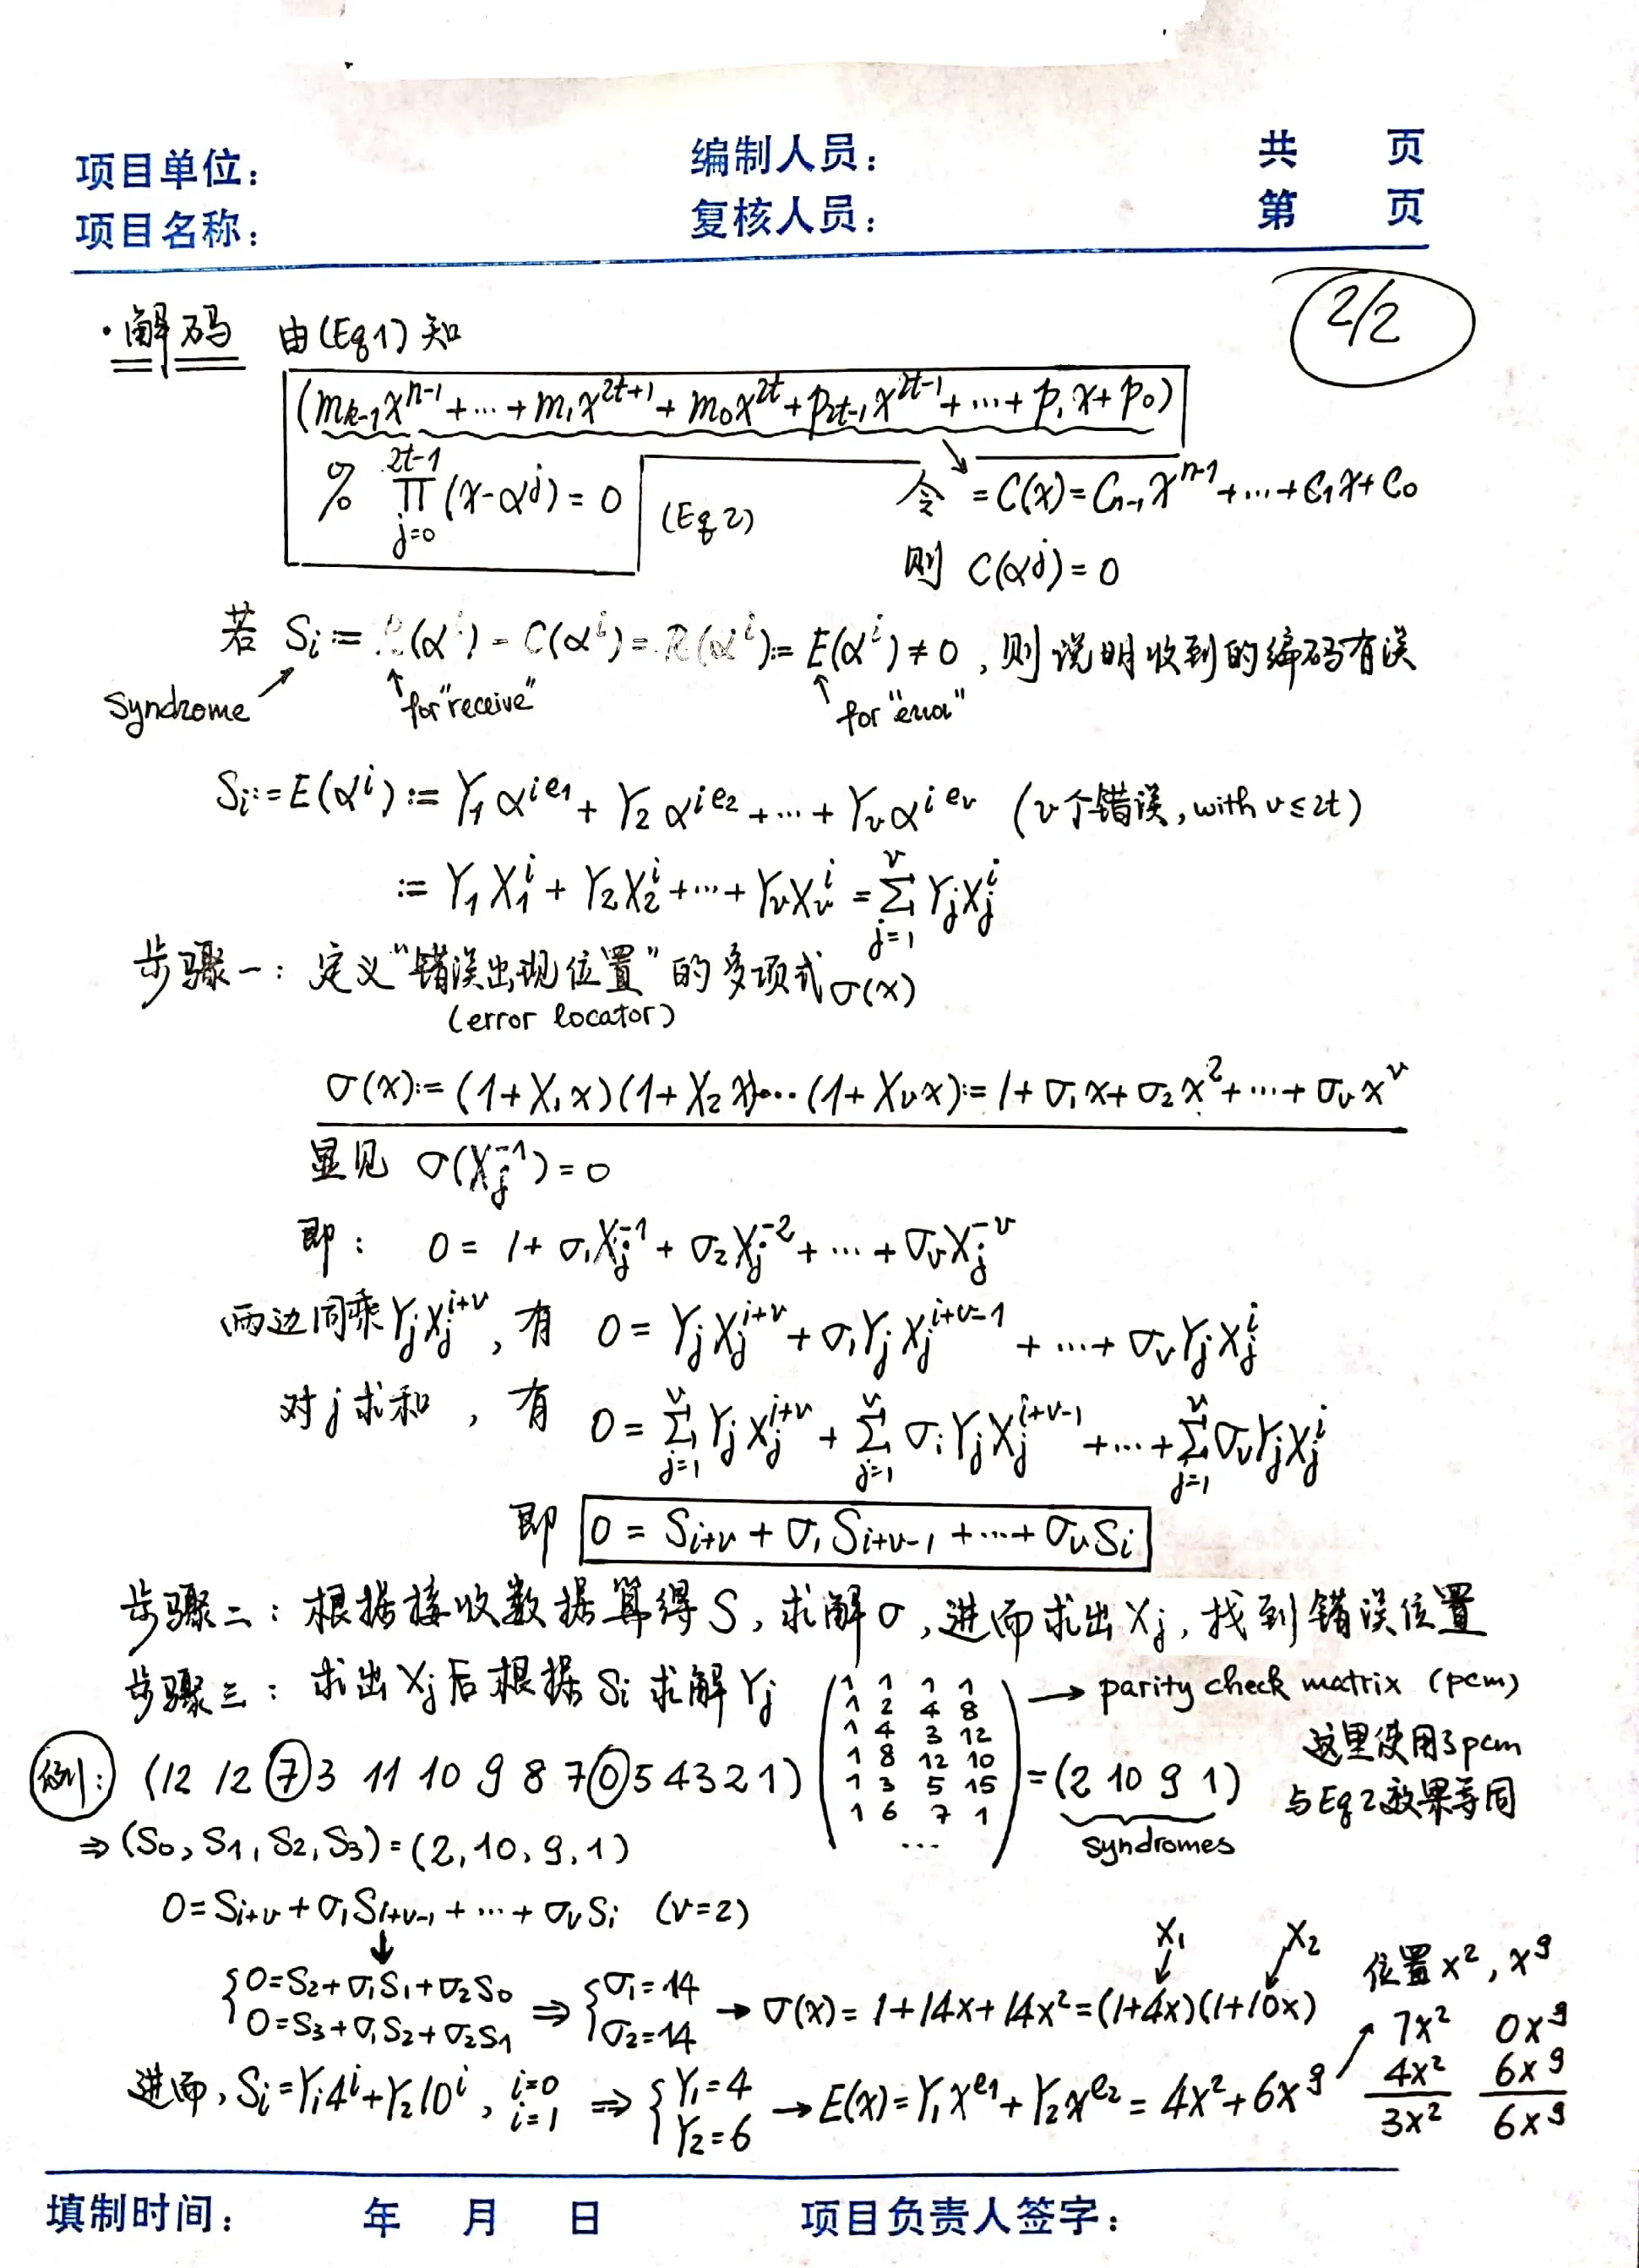 项目单位： 编制人员： 共 页
项目名称： 复核人员： 第 页
2/2
·解码 由(Eq1)知
(m_{k-1}x^{n-1}+…+m_1x^{2t+1}+m_0x^{2t}+p_{2t-1}x^{2t-1}+…+p_1x+p_0)
% ∏_{j=0}^{2t-1}(x-α^j)=0 (Eq2) 令 =C(x)=C_{n-1}x^{n-1}+…+C_1x+C_0
则 C(α^j)=0
若 S_i:= (α^i)-C(α^i)=R(α^i):=E(α^i)≠0,则说明收到的编码有误
Syndrome for"receive" for"error"
S_i:=E(α^i):=Y_1α^{ie_1}+Y_2α^{ie_2}+…+Y_vα^{ie_v} (v个错误,with v≤2t)
:=Y_1X_1^i+Y_2X_2^i+…+Y_vX_v^i=∑_{j=1}^{v}Y_jX_j^i
步骤一：定义"错误出现位置"的多项式σ(x)
(error locator)
σ(x):=(1+X_1x)(1+X_2x)…(1+X_vx):=1+σ_1x+σ_2x^2+…+σ_vx^v
显见 σ(X_j^{-1})=0
即： 0=1+σ_1X_j^{-1}+σ_2X_j^{-2}+…+σ_vX_j^{-v}
两边同乘Y_jX_j^{i+v},有 0=Y_jX_j^{i+v}+σ_1Y_jX_j^{i+v-1}+…+σ_vY_jX_j^i
对j求和，有 0=∑_{j=1}^{v}Y_jX_j^{i+v}+∑_{j=1}^{v}σ_1Y_jX_j^{i+v-1}+…+∑_{j=1}^{v}σ_vY_jX_j^i
即 0=S_{i+v}+σ_1S_{i+v-1}+…+σ_vS_i
步骤二：根据接收数据算得S,求解σ,进而求出X_j,找到错误位置
步骤三：求出X_j后根据S_i求解Y_j
例: (12 12 7 3 11 10 9 8 7 0 5 4 3 2 1)
1 1 1 1
1 2 4 8
1 4 3 12
1 8 12 10
1 3 5 15
1 6 7 1
…
→ parity check matrix (pcm)
这里使用了pcm
与Eq2效果等同
=(2 10 9 1)
syndromes
⇒(S_0,S_1,S_2,S_3)=(2,10,9,1)
0=S_{i+v}+σ_1S_{i+v-1}+…+σ_vS_i (v=2)
X_1 X_2 位置x^2,x^9
{0=S_2+σ_1S_1+σ_2S_0 ⇒ {σ_1=14 → σ(x)=1+14x+14x^2=(1+4x)(1+10x)
0=S_3+σ_1S_2+σ_2S_1 σ_2=14
7x^2 0x^9
4x^2 6x^9
3x^2 6x^9
进而,S_i=Y_14^i+Y_210^i, i=0 i=1 ⇒ {Y_1=4 Y_2=6 →E(x)=Y_1x^{e_1}+Y_2x^{e_2}=4x^2+6x^9
填制时间： 年 月 日 项目负责人签字：